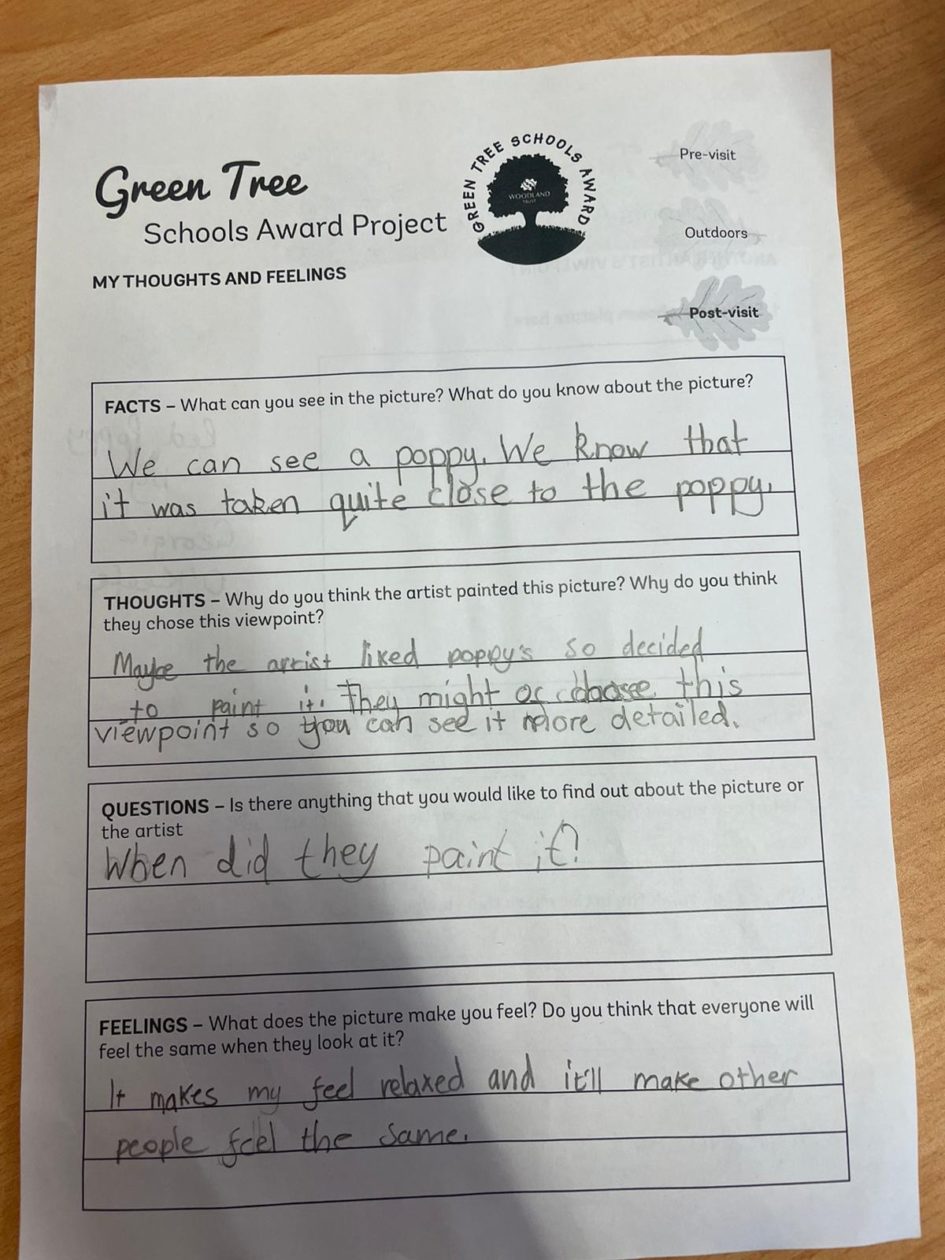 Green Tree
Schools Award Project
GREEN TREE SCHOOLS AWARD
WOODLAND
TRUST
MY THOUGHTS AND FEELINGS
Pre-visit
Outdoors
Post-visit
FACTS – What can you see in the picture? What do you know about the picture?
We can see a poppy. We know that
it was taken quite close to the poppy.
THOUGHTS – Why do you think the artist painted this picture? Why do you think
they chose this viewpoint?
Maybe the artist liked poppy's so decided
to paint it. They might of choose this
viewpoint so you can see it more detailed.
QUESTIONS – Is there anything that you would like to find out about the picture or
the artist
When did they paint it?
FEELINGS – What does the picture make you feel? Do you think that everyone will
feel the same when they look at it?
It makes my feel relaxed and it'll make other
people feel the same.